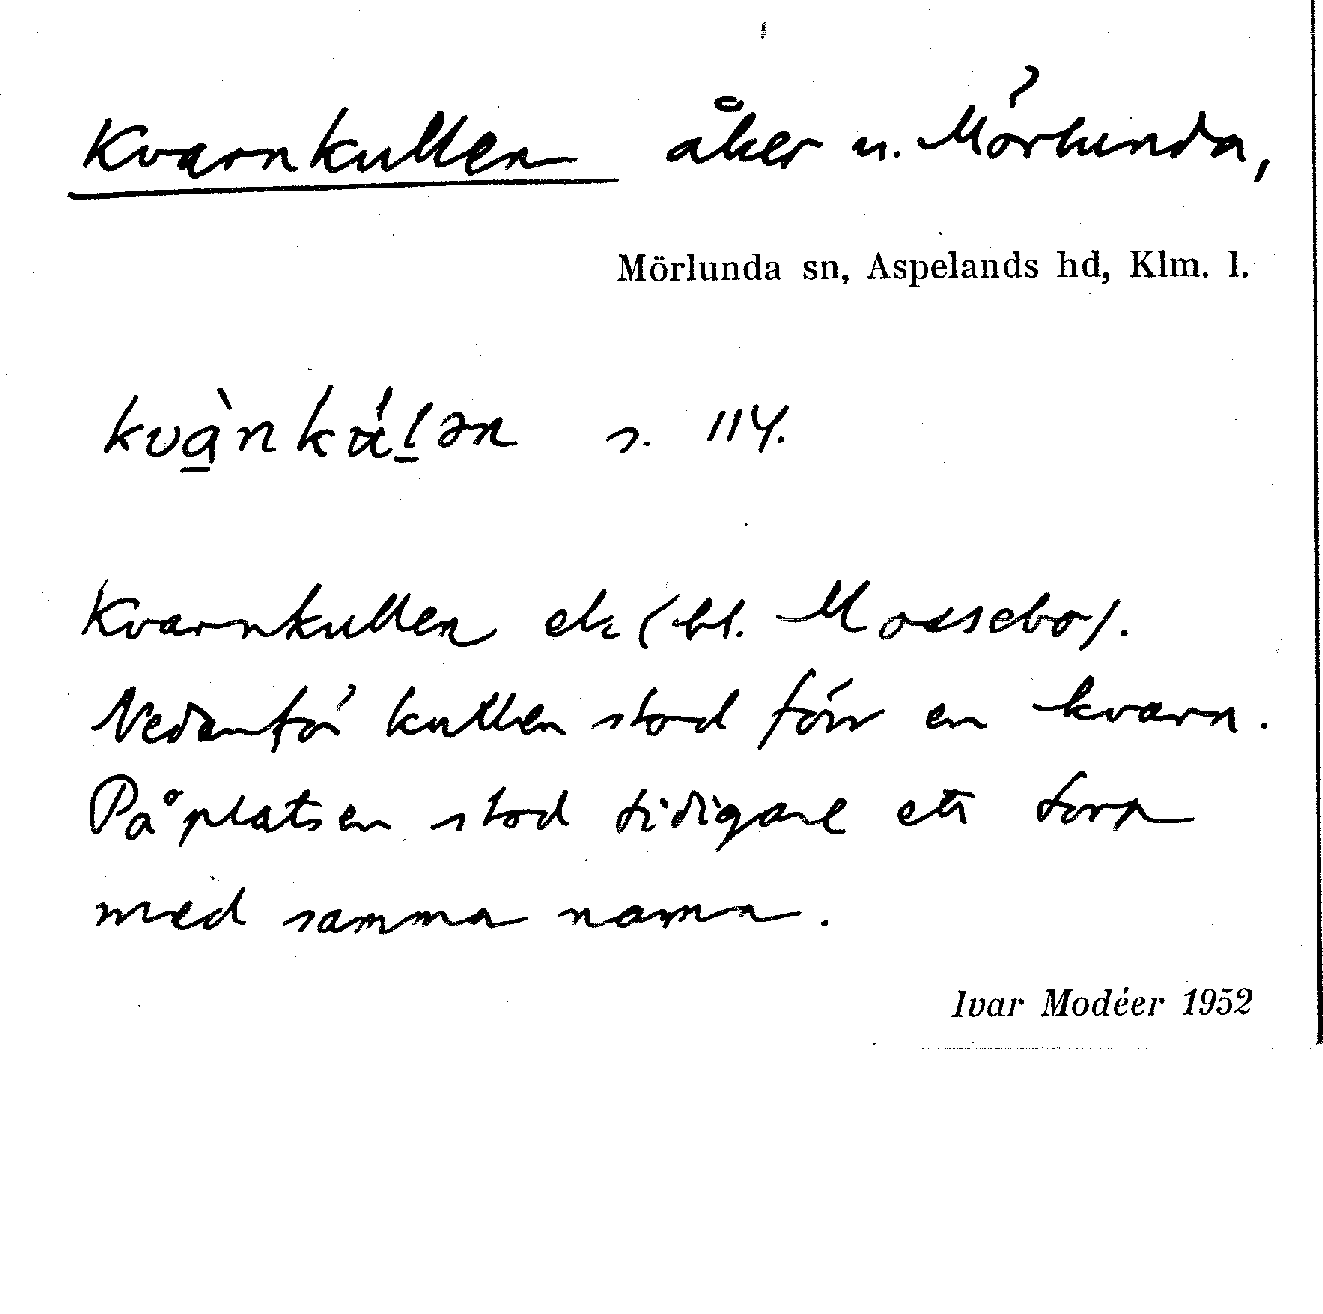 Kvarnkullen åker u. Mörlunda,
Mörlunda sn, Aspelands hd, Klm. l.
s. 114.
Kvarnkullen ek (bl. Mossebo).
Nedanför kullen stod förr en kvarn.
På platsen stod tidigare ett torp
med samma namn.
Ivar Modéer 1952